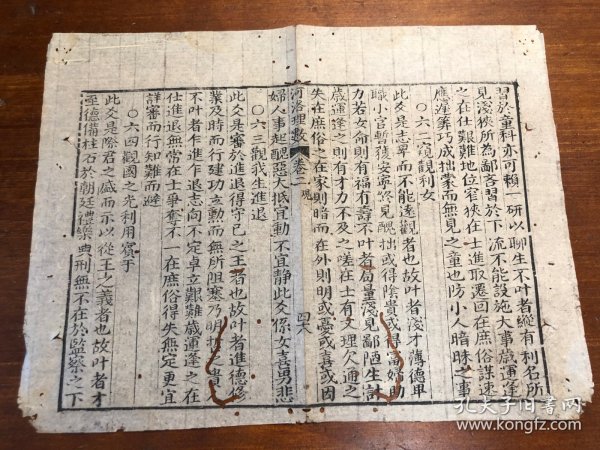 習於童科亦可賴一研以聊生不叶者縱有利名所
見淺狹所為鄙吝習於下流不能設施大事歲運逢
之在仕艱難地位窄狹在士進取遷回在庶俗謀速
應遲築巧成拙蒙而無見之童也防小人暗昧之事
〇六二窺觀利女
此爻是志卑而不能遠觀者也故叶者淺才薄德卑
職小官暫後安寧終見醜拙或得陰貴或得富婦助
力若女命則有福有壽不叶者局量淺見鄙陋生計
歲運逢之則有才力不及之嗟在士有文理欠通之
失在庶俗之在家則暗而在外則明或憂或喜或因
河洛理數 卷一 觀 四六
婦人事起醜惡大抵宜動不宜静此爻係女喜男悲
〇六三觀我生進退
此爻是審於進退得守已之王者也故叶者進德修
業及时而行建功立勳而無所阻塞乃明哲之貴
不叶者乍進乍退志向不定卓立艱難歲運逢之在
仕進退無常在士爭奪不一在庶俗得失無定更宜
詳審而行知難而避
〇六四觀國之光利用賓于
此爻是際君之盛而示以從王之義者也故叶者才
至德備柱石於朝廷禮樂典刑無不在於監察之下
孔夫子旧书网
www.kongfz.com